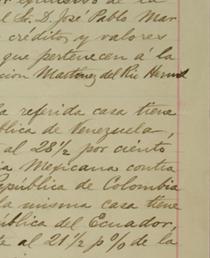 de la
el Sr. D. José Pablo Mar
créditos y valores
que pertenecen á la
cion Martinez del Rio Herms
la referida casa tiene
blica de Venezuela,
al 28½ por ciento
ia Mexicana contra
República de Colombia
la misma casa tiene
ública del Ecuador,
te al 21½ p% de la